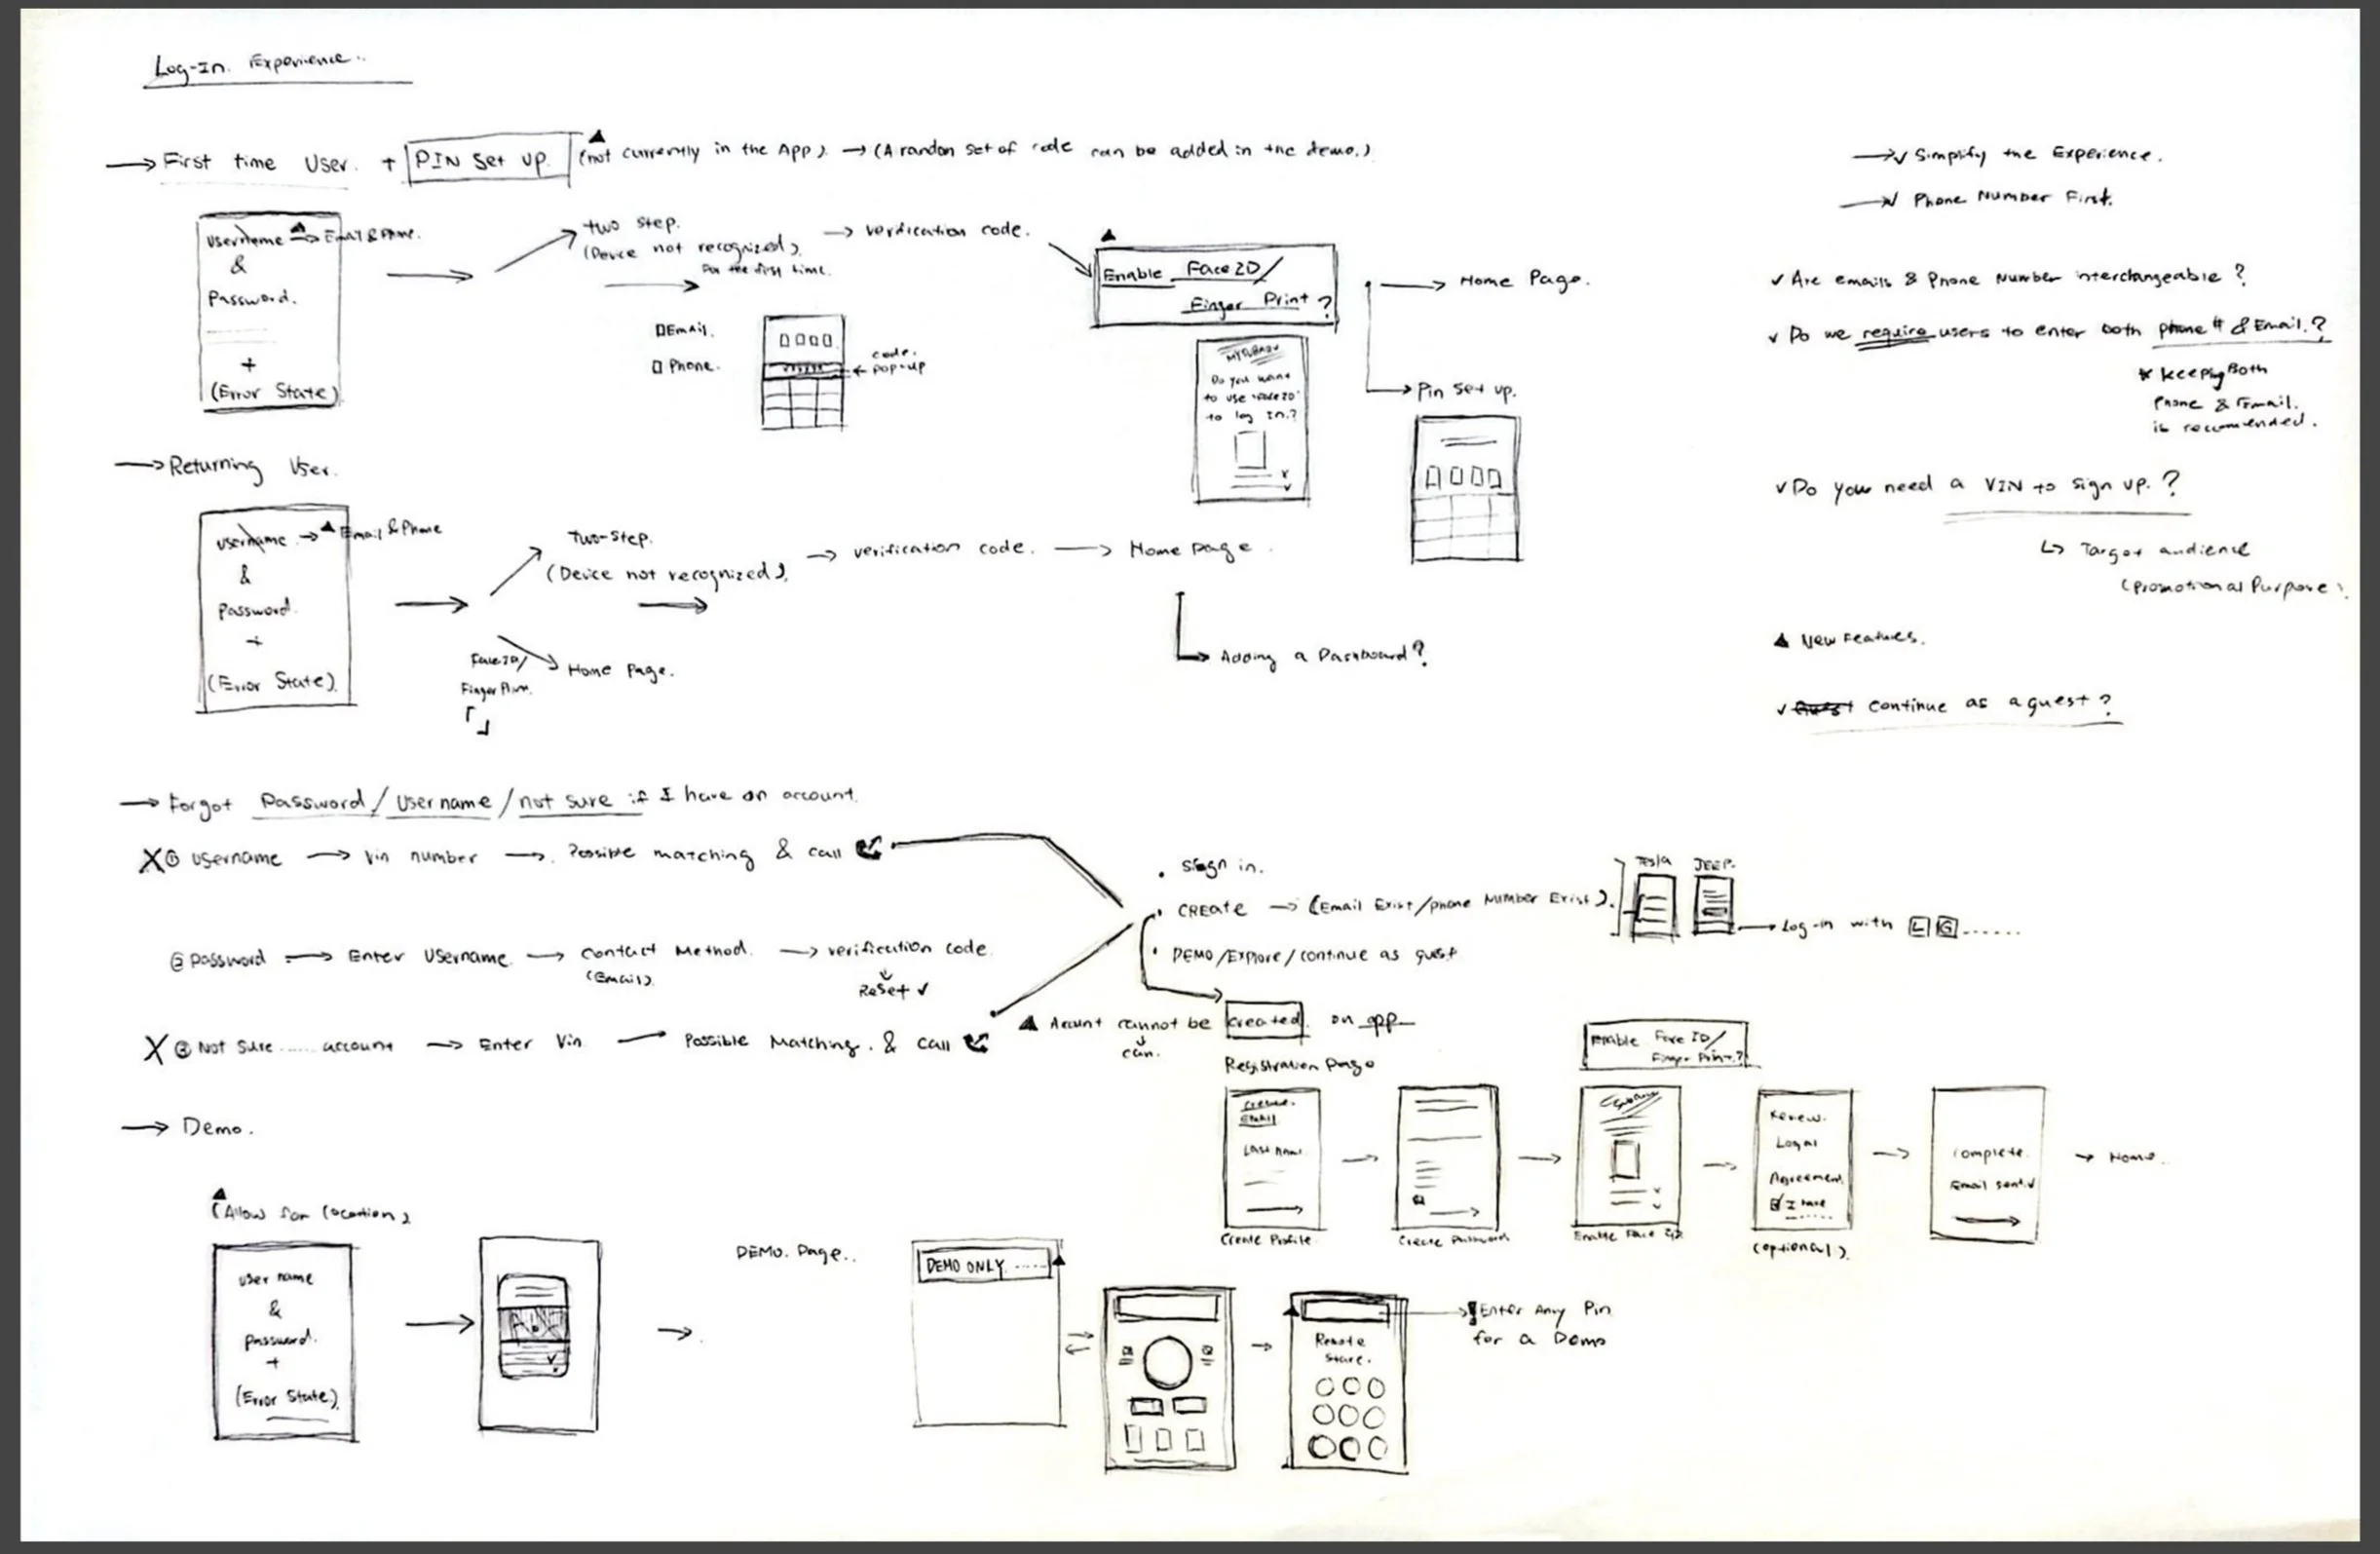 Log-In Experience
→ First time User. + PIN Set up. (not currently in the App). → (A random set of code can be added in the demo.)
Username → Email & Phone.
&
Password.
+
(Error State)
two step.
(Device not recognized).
For the first time.
→ verification code.
Email.
Phone.
code.
pop-up
Enable Face ID/
Finger Print?
Do you want
to use Face ID
to log In.?
→ Home Page.
→ Pin Set up.
→ Returning User.
Username → Email & Phone
&
Password.
+
(Error State).
Two-Step.
(Device not recognized).
→ verification code. → Home page.
Face ID/
Finger Print.
Home Page.
Adding a Dashboard?
→ Simplify the Experience.
→ Phone Number First.
✓ Are emails & Phone Number interchangeable?
✓ Do we require users to enter both phone # & Email.?
* Keeping Both
Phone & Email.
is recomended.
✓ Do you need a VIN to sign up.?
↳ Target audience
(Promotional Purpose).
▲ New Features.
✓ Continue as a guest?
→ Forgot Password/Username/not sure if I have an account.
X ① username → Vin number → Possible matching & call
② password → Enter Username → Contact Method. → verification code.
(Email).
Reset ✓
X ③ Not Sure ..... account → Enter Vin → Possible Matching. & call
• Sign in.
• CREATE → (Email Exist/phone Number Exist).
• DEMO/Explore/continue as guest
Tesla
JEEP.
→ Log-in with L G ......
▲ Acount cannot be created. on app
can.
Registration Page
Enable Face ID/
Finger Print.?
Last name.
Create Profile.
Create Password
Enable Face ID
Review.
Legal
Agreement.
(optional).
Complete.
Email sent ✓
→ Home.
→ Demo.
▲
(Allow for location)
user name
&
password.
+
(Error State)
DEMO. Page..
DEMO ONLY .....
Remote
→ Enter Any Pin
for a Demo